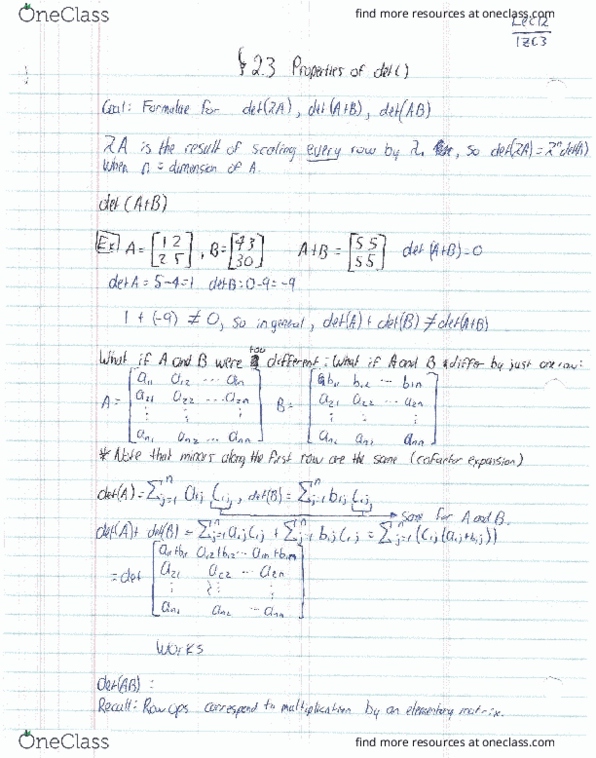 OneClass
find more resources at oneclass.com
Lec 12
1ZC3
§ 2.3 Properties of det()
Goal: Formulae for det(λA), det(A+B), det(AB)
λA is the result of scaling every row by λ, so det(λA) = λⁿ det(A)
when n = dimension of A.
det(A+B)
Ex A = [1 2; 2 5], B = [4 3; 3 0] A+B = [5 5; 5 5] det(A+B) = 0
det A = 5-4 = 1 det B = 0-9 = -9
1 + (-9) ≠ 0, so in general, det(A) + det(B) ≠ det(A+B)
What if A and B were too different: What if A and B differ by just one row:
A = [a₁₁ a₁₂ ... a₁ₙ; a₂₁ a₂₂ ... a₂ₙ; ⋮ ⋮ ⋮; aₙ₁ aₙ₂ ... aₙₙ] B = [b₁₁ b₁₂ ... b₁ₙ; a₂₁ a₂₂ ... a₂ₙ; ⋮ ⋮ ⋮; aₙ₁ aₙ₂ aₙₙ]
* Note that minors along the first row are the same (cofactor expansion)
det(A) = Σⁿⱼ₌₁ a₁ⱼ C₁ⱼ, det(B) = Σⁿⱼ₌₁ b₁ⱼ C₁ⱼ
same for A and B.
det(A) + det(B) = Σⁿⱼ₌₁ a₁ⱼC₁ⱼ + Σⁿⱼ₌₁ b₁ⱼC₁ⱼ = Σⁿⱼ₌₁ (C₁ⱼ(a₁ⱼ+b₁ⱼ))
= det [a₁₁+b₁₁ a₁₂+b₁₂ ... a₁ₙ+b₁ₙ; a₂₁ a₂₂ ... a₂ₙ; ⋮ ⋮ ⋮; aₙ₁ aₙ₂ ... aₙₙ]
Works
det(AB):
Recall: Row ops correspond to multiplication by an elementary matrix.
OneClass
find more resources at oneclass.com